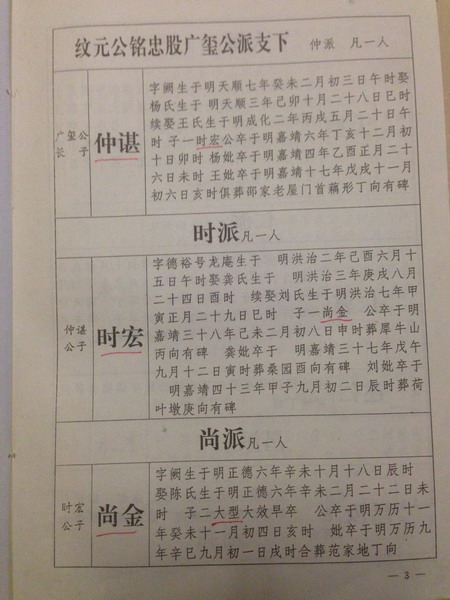 纹元公铭忠股广玺公派支下 仲派 凡一人
广玺公
长子
仲谌
字阙生于明天顺七年癸未二月初三日午时娶
杨氏生于 明天顺三年己卯十月二十八日巳时
续娶王氏生于明成化二年丙戌五月二十日午
时 子一时宏公卒于明嘉靖六年丁亥十二月初
十日卯时 杨妣卒于明嘉靖四年乙酉正月二十
六日未时 王妣卒于明嘉靖十七年戊戌十一月
初六日亥时俱葬邵家老屋门首藕形丁向有碑
时派凡一人
仲谌
公子
时宏
字德裕号龙庵生于 明洪治二年己酉六月十
五日午时娶龚氏生于 明洪治三年庚戌八月
二十四日酉时 续娶刘氏生于明洪治七年甲
寅正月二十九日巳时 子一尚金 公卒于明
嘉靖三十八年己未二月初八日申时葬犀牛山
丙向有碑 龚妣卒于 明嘉靖三十七年戊午
九月十二日寅时葬桑园酉向有碑 刘妣卒于
明嘉靖四十三年甲子九月初二日辰时葬荷
叶墩庚向有碑
尚派凡一人
时宏
公子
尚金
字阙生于明正德六年辛未十月十八日辰时
娶陈氏生于明正德六年辛未二月二十二日未
时 子二大型大效早卒 公卒于明万历十一
年癸未十一月初四日亥时 妣卒于明万历九
年辛巳九月初一日戌时合葬范家地丁向
— 3 —